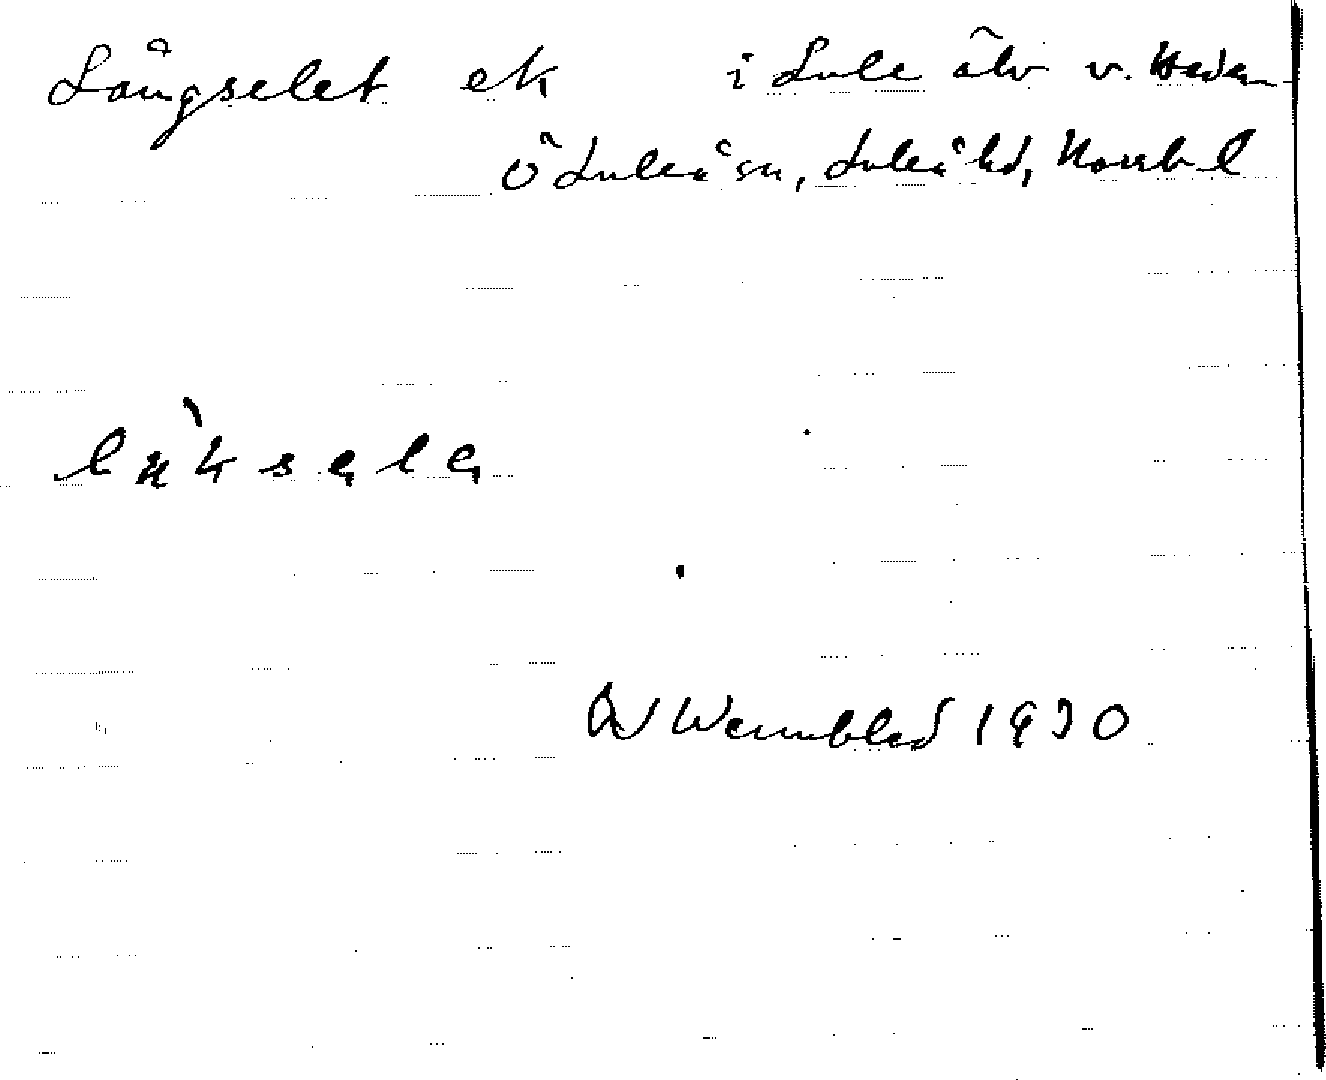 Långselet ek i Lule älv v. Heden
Ö Luleå sn, Luleå hd, Norrb l
OJ Wennbled 1930